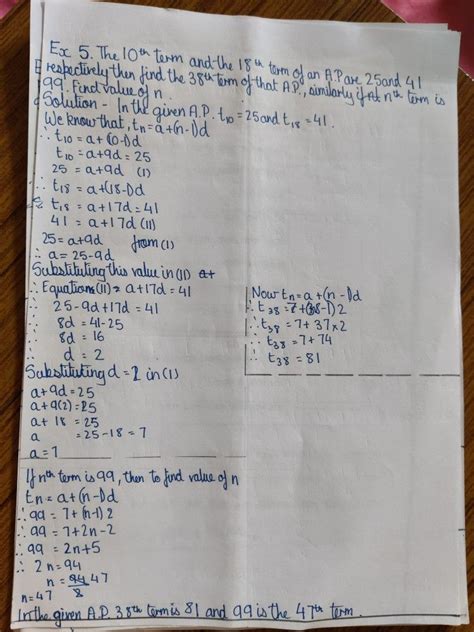 Ex 5. The 10th term and the 18th term of an A.P are 25 and 41
respectively then find the 38th term of that A.P., similarly if nth term is
99. Find value of n.
Solution - In the given A.P. t10 = 25 and t18 = 41.
We know that, tn = a+(n-1)d
∴ t10 = a+(10-1)d
t10 = a+9d = 25
25 = a+9d (I)
∴ t18 = a+(18-1)d
t18 = a+17d = 41
41 = a+17d (II)
25 = a+9d from (I)
∴ a = 25-9d
Substituting this value in (II)
∴ Equation (II) = a+17d = 41
∴ 25-9d+17d = 41
∴ 8d = 41-25
∴ 8d = 16
∴ d = 2
Substituting d = 2 in (I)
a+9d = 25
a+9(2) = 25
a+ 18 = 25
a = 25-18 = 7
a = 7
Now tn = a+(n-1)d
∴ t38 = 7+(38-1)2
∴ t38 = 7+37×2
∴ t38 = 7+74
∴ t38 = 81
If nth term is 99, then to find value of n
tn = a+(n-1)d
∴ 99 = 7+(n-1)2
∴ 99 = 7+2n-2
∴ 99 = 2n+5
∴ 2n = 94
n = 94 47
n = 47
In the given A.P. 38th term is 81 and 99 is the 47th term.